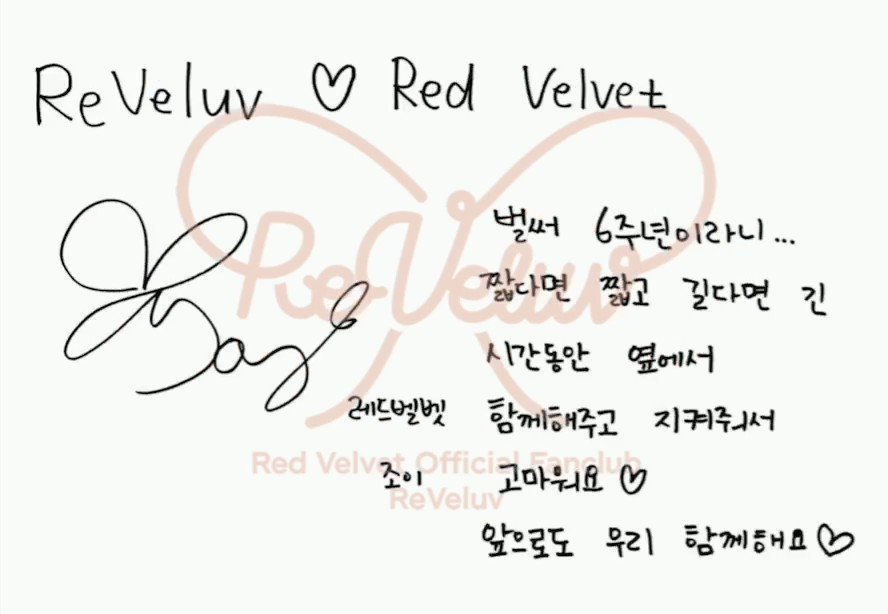 ReVeluv ♡ Red Velvet
벌써 6주년이라니...
짧다면 짧고 길다면 긴
시간동안 옆에서
함께해주고 지켜줘서
고마워요 ♡
앞으로도 우리 함께해요♡
레드벨벳
조이
Joy
ReVeluv
Red Velvet Official Fanclub
ReVeluv